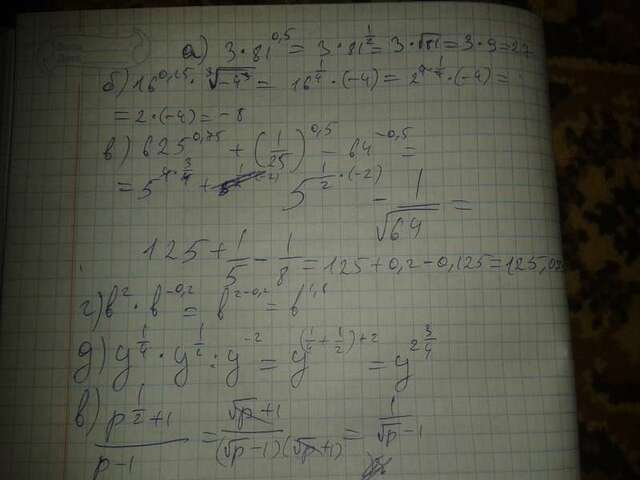 а) 3·81^0,5 = 3·81^(1/2) = 3·√81 = 3·9 = 27
б) 16^0,25 · ∛(-4³) = 16^(1/4) · (-4) = 2^(4·1/4) · (-4) =
= 2·(-4) = -8
в) 625^0,75 + (1/25)^0,5 - 64^-0,5 =
= 5^(4·3/4) + 5^(1/2·(-2)) - 1/√64 =
125 + 1/5 - 1/8 = 125 + 0,2 - 0,125 = 125,075
г) b² · b^-0,2 = b^(2-0,2) = b^1,8
д) y^(1/4) · y^(1/2) : y^-2 = y^((1/4 + 1/2) + 2) = y^(2 3/4)
в) (p^(1/2) + 1)/(p-1) = (√p + 1)/((√p - 1)(√p + 1)) = 1/(√p - 1)